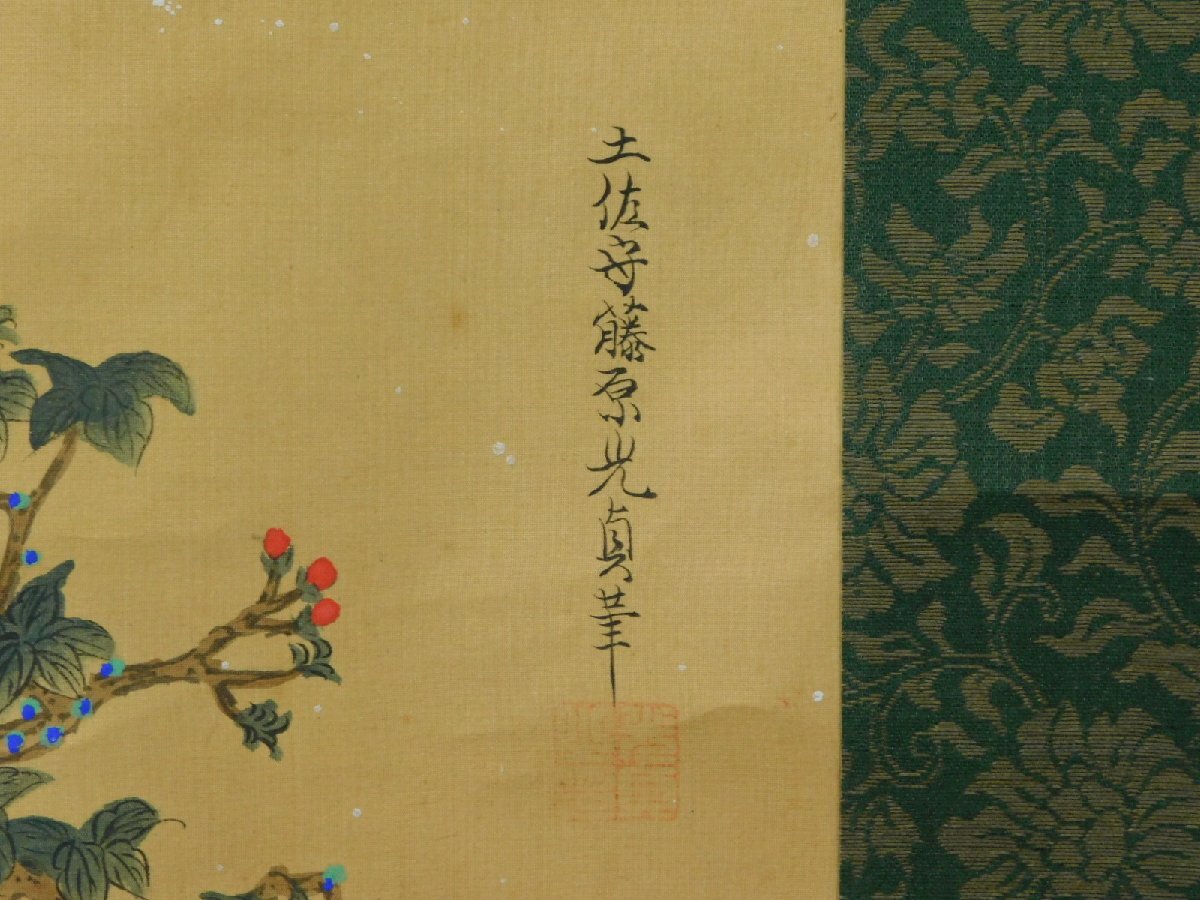 土佐守藤原光貞筆